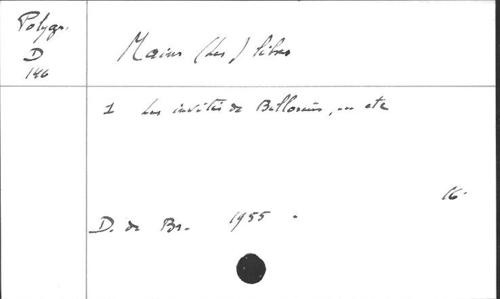 Polygr.
D
146
Mains (Les) libres
1 Les invités de Bethléem, ... etc
16.
D. de Br. 1955.